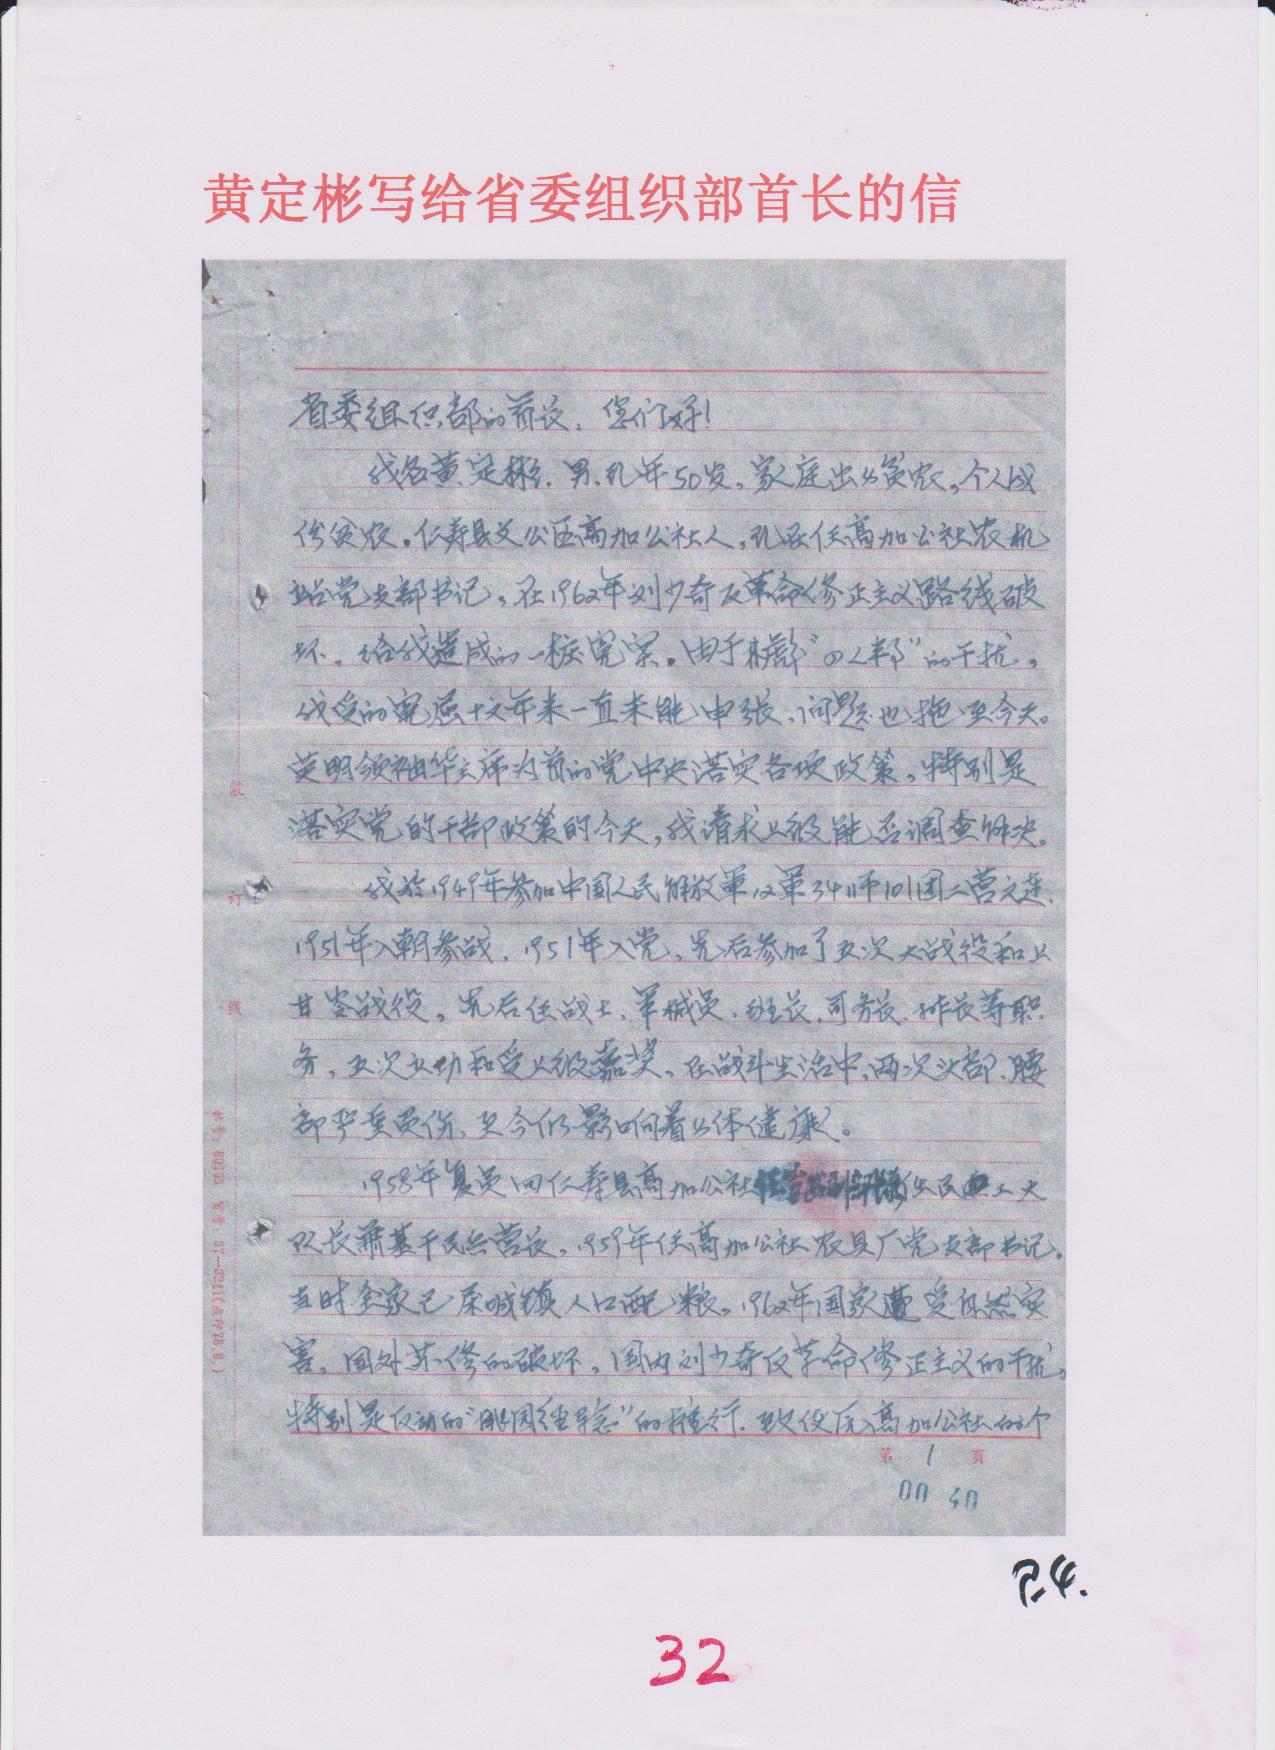 黄定彬写给省委组织部首长的信
省委组织部的首长：您们好！
我名黄定彬，男，现年50岁，家庭出身贫农，个人成
份贫农。仁寿县文公区高加公社人，现在任高加公社农机
站党支部书记，在1962年刘少奇反革命修正主义路线破
坏，给我造成的一桩冤案。由于林彪“四人帮”的干扰，
我受的冤屈十六年来一直未能申张，问题也拖至今天。
英明领袖华主席为首的党中央落实各项政策，特别是
落实党的干部政策的今天，我请求上级能否调查解决。
我於1949年参加中国人民解放軍12軍34师101团二营六连，
1951年入朝参战，1951年入党，先后参加了五次大战役和上
甘岭战役，先后任战士、軍械员、班长、司务长、排长等职
务，五次立功和受上级嘉奖，在战斗生活中，两次头部、腰
部严重负伤，至今仍影响着身体健康。
1958年复员回仁寿县高加公社 任民工大
队长兼基干民兵营长，1959年任高加公社农具厂党支部书记。
当时全家已属城镇人口配粮。1962年国家遭受自然灾
害，国外苏修的破坏，国内刘少奇反革命修正主义的干扰，
特别是反动的 的推行，致使原高加公社的个
装
订
线
第 1 页
00 40
P.4.
32